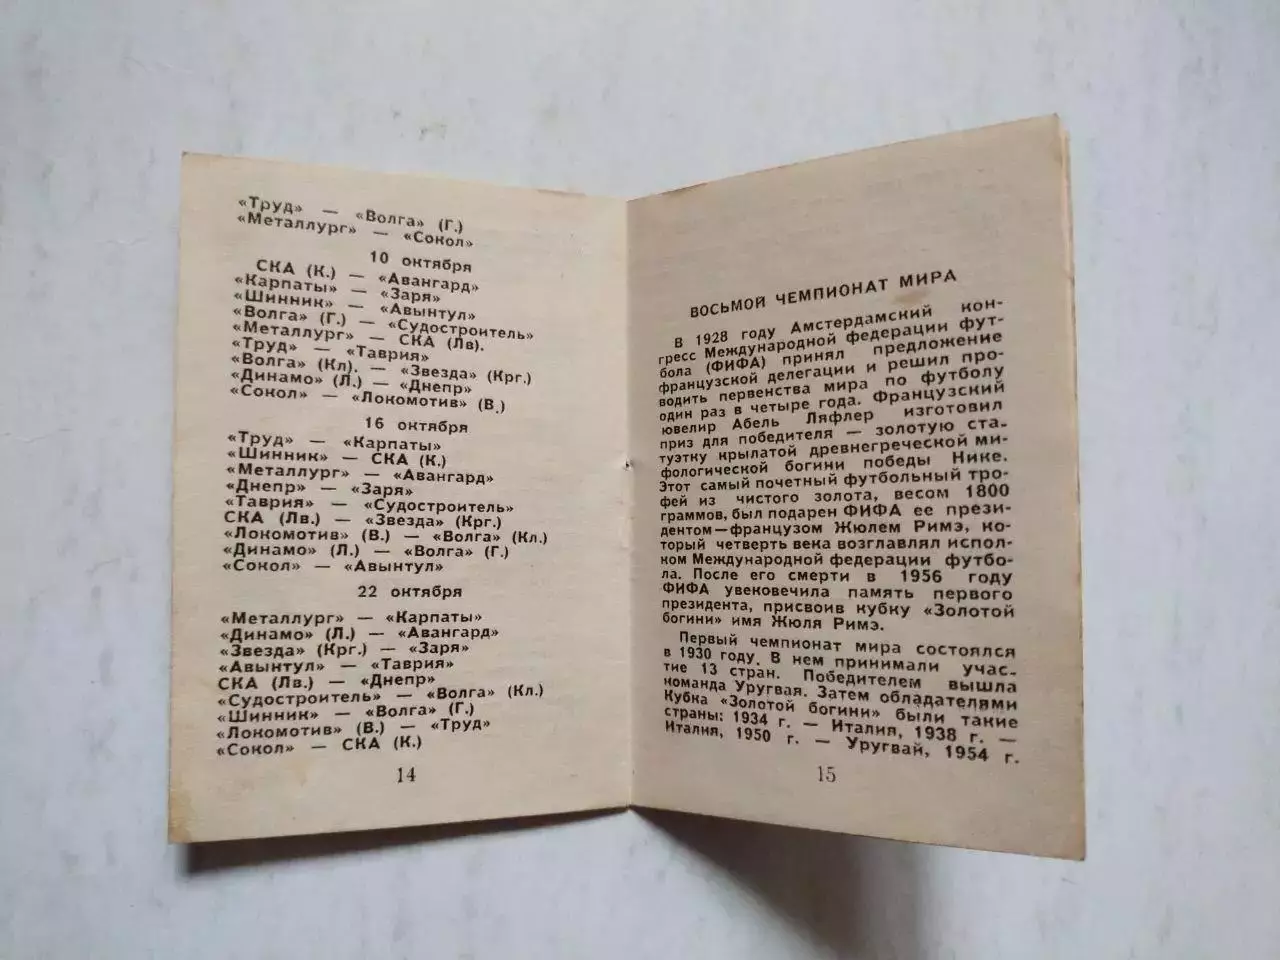 «Труд» — «Волга» (Г.)
«Металлург» — «Сокол»
10 октября
СКА (К.) — «Авангард»
«Карпаты» — «Заря»
«Шинник» — «Авынтул»
«Волга» (Г.) — «Судостроитель»
«Металлург» — СКА (Лв).
«Труд» — «Таврия»
«Волга» (Кл). — «Звезда» (Крг.)
«Динамо» (Л.) — «Днепр»
«Сокол» — «Локомотив» (В.)
16 октября
«Труд» — «Карпаты»
«Шинник» — СКА (К.)
«Металлург» — «Авангард»
«Днепр» — «Заря»
«Таврия» — «Судостроитель»
СКА (Лв.) — «Звезда» (Крг.)
«Локомотив» (В.) — «Волга» (Кл.)
«Динамо» (Л.) — «Волга» (Г.)
«Сокол» — «Авынтул»
22 октября
«Металлург» — «Карпаты»
«Динамо» (Л.) — «Авангард»
«Звезда» (Крг.) — «Заря»
«Авынтул» — «Таврия»
СКА (Лв.) — «Днепр»
«Судостроитель» — «Волга» (Кл.)
«Шинник» — «Волга» (Г.)
«Локомотив» (В.) — «Труд»
«Сокол» — СКА (К.)
14
ВОСЬМОЙ ЧЕМПИОНАТ МИРА
В 1928 году Амстердамский кон-
гресс Международной федерации фут-
бола (ФИФА) принял предложение
французской делегации и решил про-
водить первенства мира по футболу
один раз в четыре года. Французский
ювелир Абель Ляфлер изготовил
приз для победителя — золотую ста-
туэтку крылатой древнегреческой ми-
фологической богини победы Нике.
Этот самый почетный футбольный тро-
фей из чистого золота, весом 1800
граммов, был подарен ФИФА ее прези-
дентом—французом Жюлем Римэ, ко-
торый четверть века возглавлял испол-
ком Международной федерации футбо-
ла. После его смерти в 1956 году
ФИФА увековечила память первого
президента, присвоив кубку «Золотой
богини» имя Жюля Римэ.
Первый чемпионат мира состоялся
в 1930 году. В нем принимали учас-
тие 13 стран. Победителем вышла
команда Уругвая. Затем обладателями
Кубка «Золотой богини» были такие
страны: 1934 г. — Италия, 1938 г. —
Италия, 1950 г. — Уругвай, 1954 г.
15